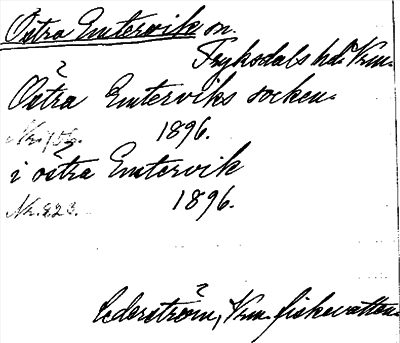 Östra Emtervik sn.
Fryksdals hd. Vrm.
Östra Emterviks socken.
Nr. 756. 1896.
i östra Emtervik
Nr. 223. 1896.
Cederström, Vrm. fiskevatten.